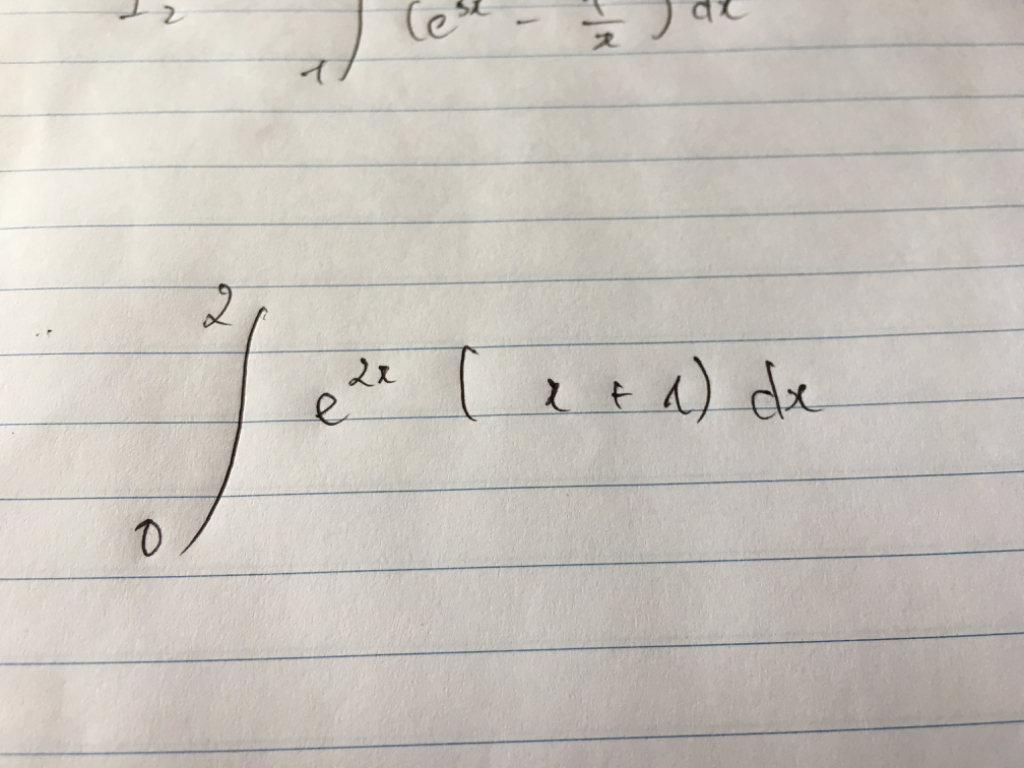 I₂ ∫₁ (e³ˣ - 1/x) dx
∫₀² e²ˣ ( x + 1) dx